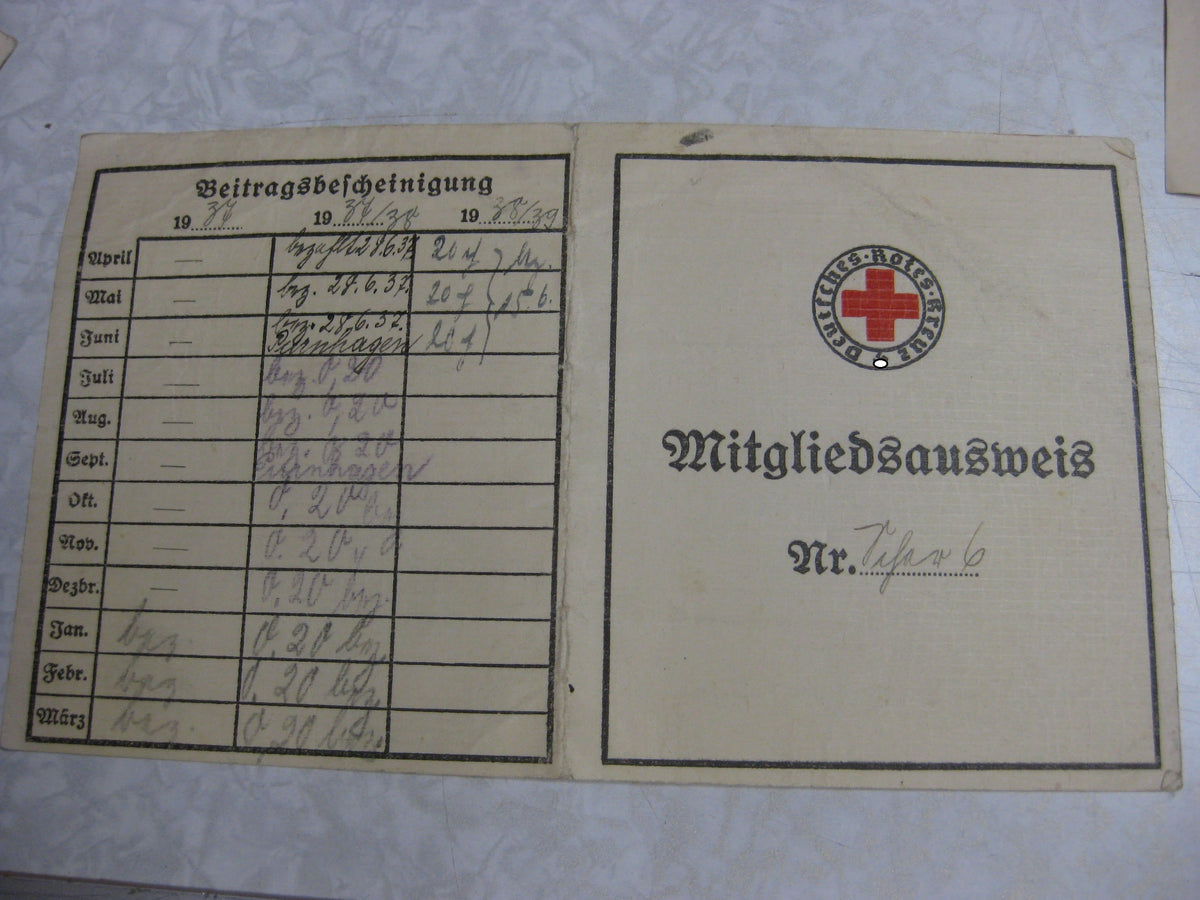 Beitragsbescheinigung
19 37 19 37/38 19 38/39
April — bezahlt 28.6.37. 20 bz.
Mai — bez. 28.6.37. 20 25.6.
Juni — bez. 28.6.37. 20
Juli — bez. 0,20
Aug. — bez. 0,20
Sept. — bez. 0,20
Okt. — 0,20 bez
Nov. — 0.20
Dezbr. — 0,20 bez.
Jan. bez. 0,20 bez.
Febr. bez 0,20 bez.
März bez. 0,20 bez.
Deutsches · Rotes · Kreuz
Mitgliedsausweis
Nr. 6